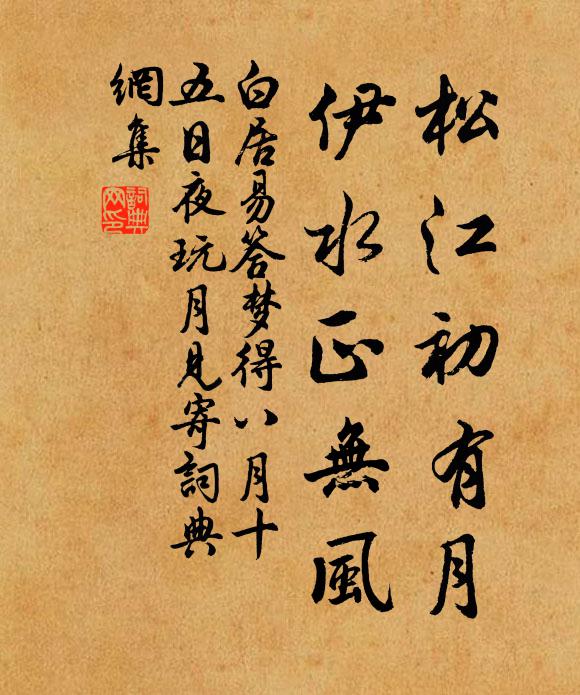 松江初有月
伊水正無風
白居易答梦得八月十
五日夜玩月見寄詞典
網集
詞典
網印